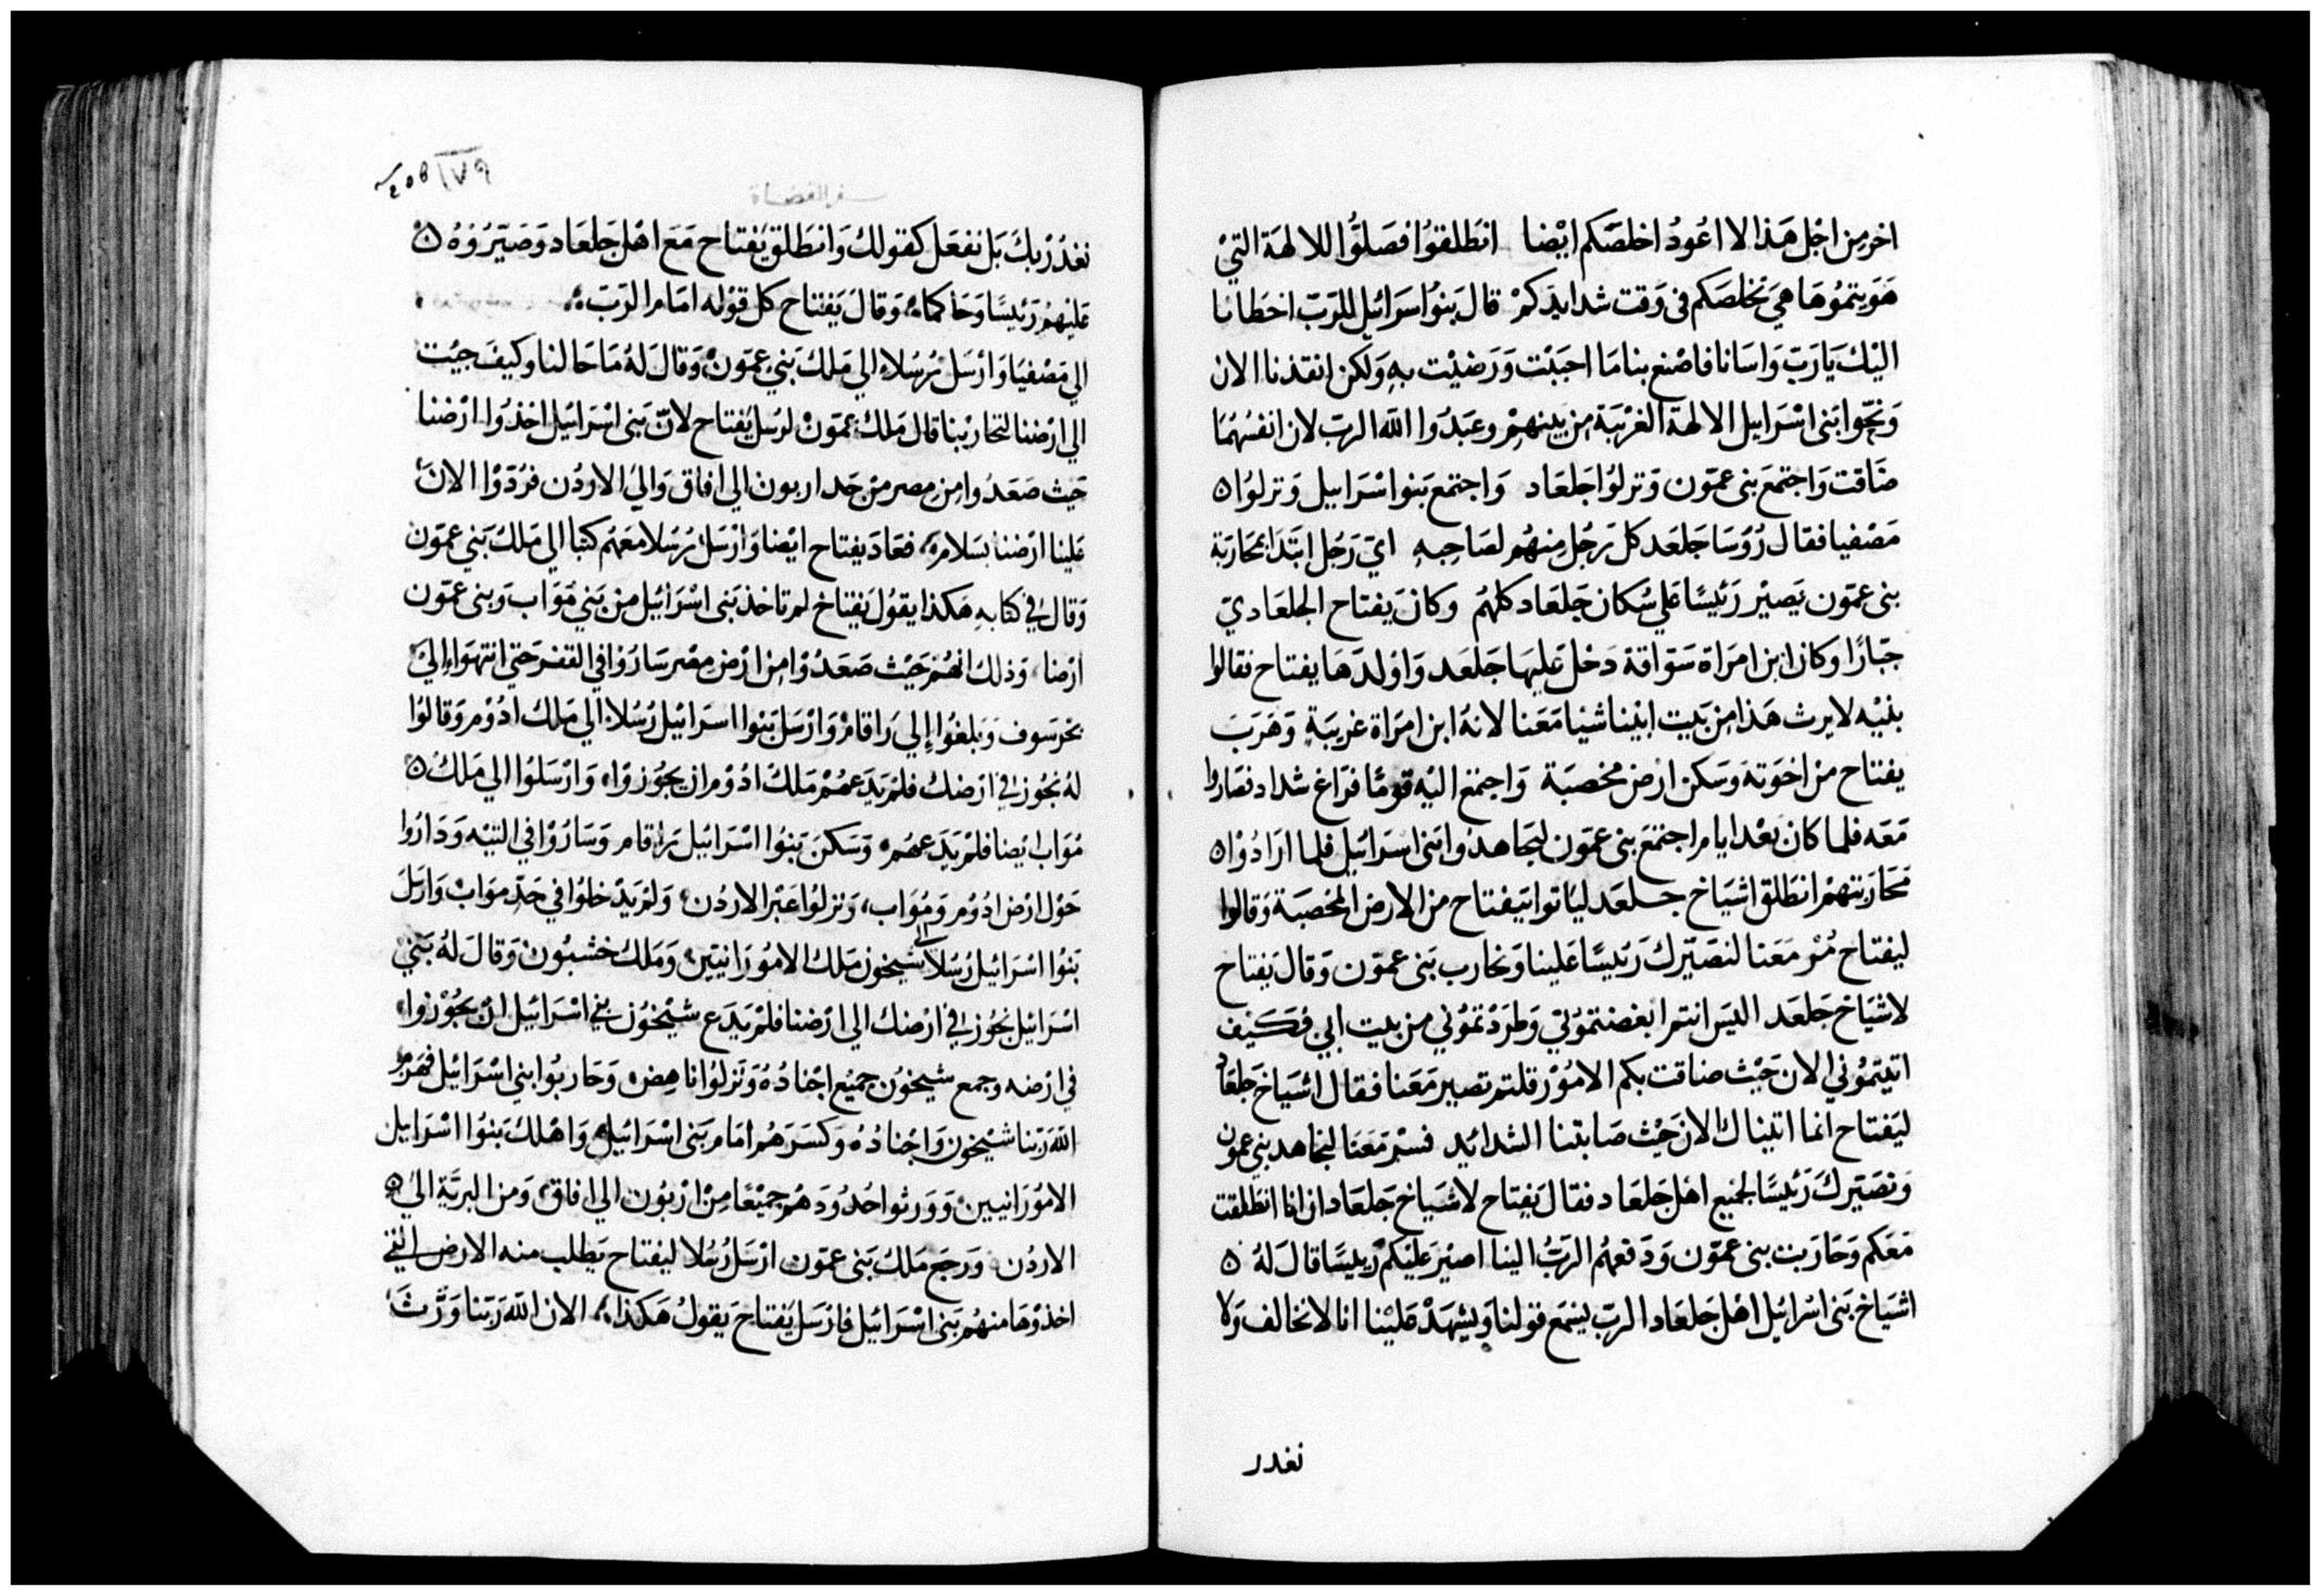 اخر من اجل هذا لا اعود اخلصكم ايضا انطلقوا فصلوا للالهة التي
هويتموها هي تخلصكم في وقت شدايدكم قال بنوا اسرائيل للرب اخطانا
اليك يا رب واسانا فاصنع بنا ما احببت ورضيت به ولكن انقذنا الان
ونحوا بنى اسرايل الالهة الغريبة من بينهم وعبدوا الله الرب لان انفسهما
ضاقت واجتمع بنى عمون ونزلوا جلعاد واجتمع بنوا اسرايل ونزلوا
مصفيا فقال رؤسا جلعد كل رجل منهم لصاحبه اي رجل ابتدا بمحاربة
بنى عمون يصير رئيسًا على سكان جلعاد كلهم وكان يفتاح الجلعادي
جبارًا وكان ابن امراة سواقة دخل عليها جلعد واولدها يفتاح فقالوا
بنيه لا يرث هذا من بيت ابينا شيا معنا لانه ابن امراة غريبة وهرب
يفتاح من اخوته وسكن ارض مخصبة واجتمع اليه قومًا فراغ شداد فصاروا
معه فلما كان بعد ايام اجتمع بنى عمون ليجاهدوا بنى اسرائيل فلما ارادوا
محاربتهم انطلق اشياخ جلعد لياتوا بيفتاح من الارض المخصبة وقالوا
ليفتاح مُر معنا لنصيرك رئيسًا علينا ونحارب بنى عمون وقال يفتاح
لاشياخ جلعد اليس انتم ابغضتموني وطردتموني من بيت ابي فكيف
اتيتموني الان حيث ضاقت بكم الامور قلتم تصير معنا فقال اشياخ جلعاد
ليفتاح انما اتيناك الان حيث صابتنا الشدائد فسر معنا لنجاهد بني عمون
ونصيرك رئيسًا لجميع اهل جلعاد فقال يفتاح لاشياخ جلعاد ان انا انطلقت
معكم وحاربت بنى عمون ودفعهم الربُ الينا اصير عليكم رييسًا قال له
اشياخ بنى اسرائيل اهل جلعاد الرب يسمع قولنا ويشهد علينا انا لا نخالف ولا
نغدر
سفر القضاة
نغدُر بك بل نفعل كقولك وانطلق يفتاح مع اهل جلعاد وصيّروُه
عليهم رئيسًا وحاكما وقال يفتاح كل قوله امام الرب
الي مصفيا وارسل رُسُلا الي ملك بني عمون وقال له ما حالنا وكيف جيت
الي ارضنا لتحاربنا قال ملك عمون لرسل يفتاح لان بنى اسرائيل اخذوا ارضنا
حيث صعدوا من مصر من حد اربون الي افاق والي الاردن فرُدّوا الان
علينا ارضنا بسلامه فعاد يفتاح ايضا وارسل رسلا معهم كتبا الي ملك بني عمون
وقال في كتابه هكذا يقول يفتاح لم تاخذ بنى اسرائيل من بني مواب وبنى عمون
ارضا وذلك انهم حيث صعدوا من ارض مصر ساروا في القفر حتى انتهوا إلي
بحر سوف وبلغوا إلي راقام وارسل بنوا اسرائيل رُسلا الي ملك ادوم وقالوا
له نجوز في ارضك فلم يدعهم ملك ادوم ان يجوزوا وارسلوا الي ملك
مواب ايضا فلم يدعهم وسكن بنوا اسرائيل براقام وساروا في التيه وداروا
حول ارض ادوم ومواب ونزلوا عبر الاردن ولم يدخلوا في حدّ مواب وارسل
بنوا اسرائيل رسلا الي شيحون ملك الامورانيين وملك خشبون وقال له بني
اسرائيل نجوز في ارضك الي ارضنا فلم يدع شيخون بني اسرائيل ان يجوزوا
في ارضه وجمع شيحون جميع اجناده ونزلوا ناهض وحاربوا بني اسرائيل فهزم
الله ربنا شيحون واجناده وكسرهم امام بنى اسرائيل واهلك بنوا اسرايل
الامورانيين وورثوا حدودهم جميعًا من اربون الي افاق ومن البرية الي
الاردن ورجع ملك بنى عمون ارسل رُسُلا ليفتاح يطلب منه الارض التي
اخذوها منهم بنى اسرائيل فارسل يفتاح يقول هكذا الان الله ربنا ورّث